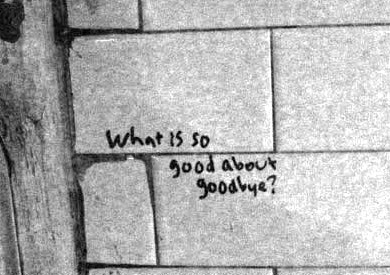 What is so
good about
goodbye?